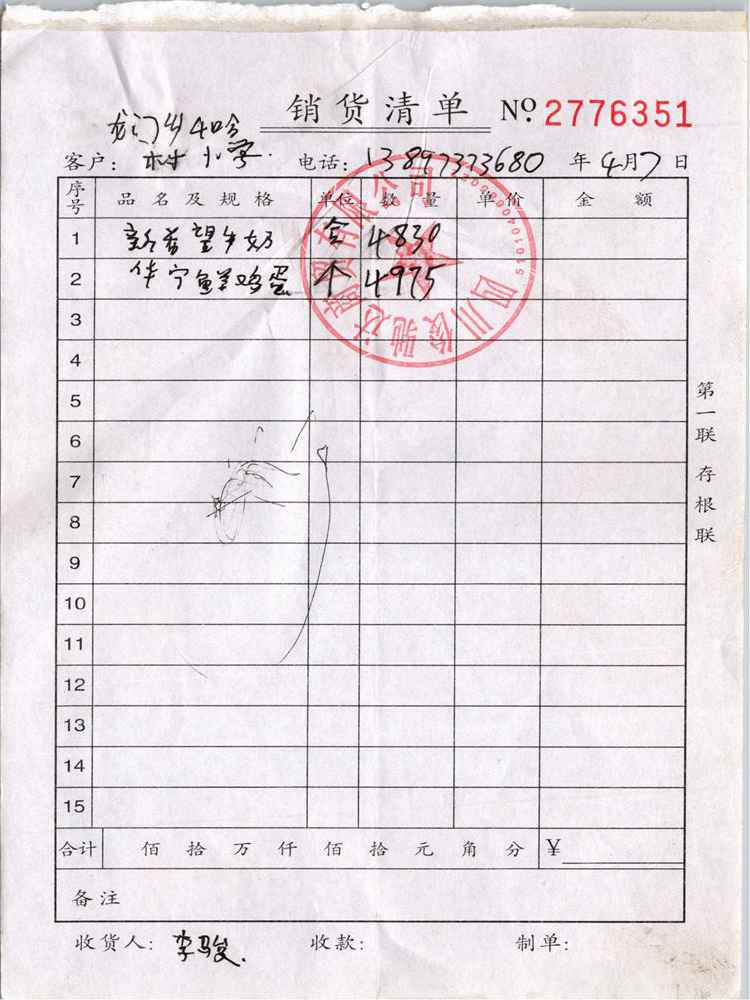 销货清单 No. 2776351
龙门乡
客户: 村小学. 电话: 13897373680 年 4月7日
序号 品名及规格 单位 数量 单价 金额
1 新希望牛奶 合 4830
2 华宁鲜鸡蛋 个 4975
3
4
5
6
7
8
9
10
11
12
13
14
15
合计 佰 拾 万 仟 佰 拾 元 角 分 ¥
备注
收货人: 李马俊. 收款: 制单:
第一联 存根联
四川俊驰达商贸有限公司